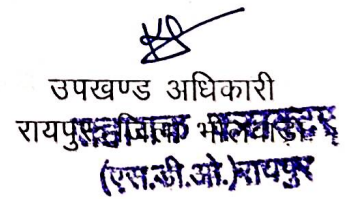 उपखण्ड अधिकारी
रायपुर जिला भीलवाड़ा
(एस.डी.ओ.)रायपुर